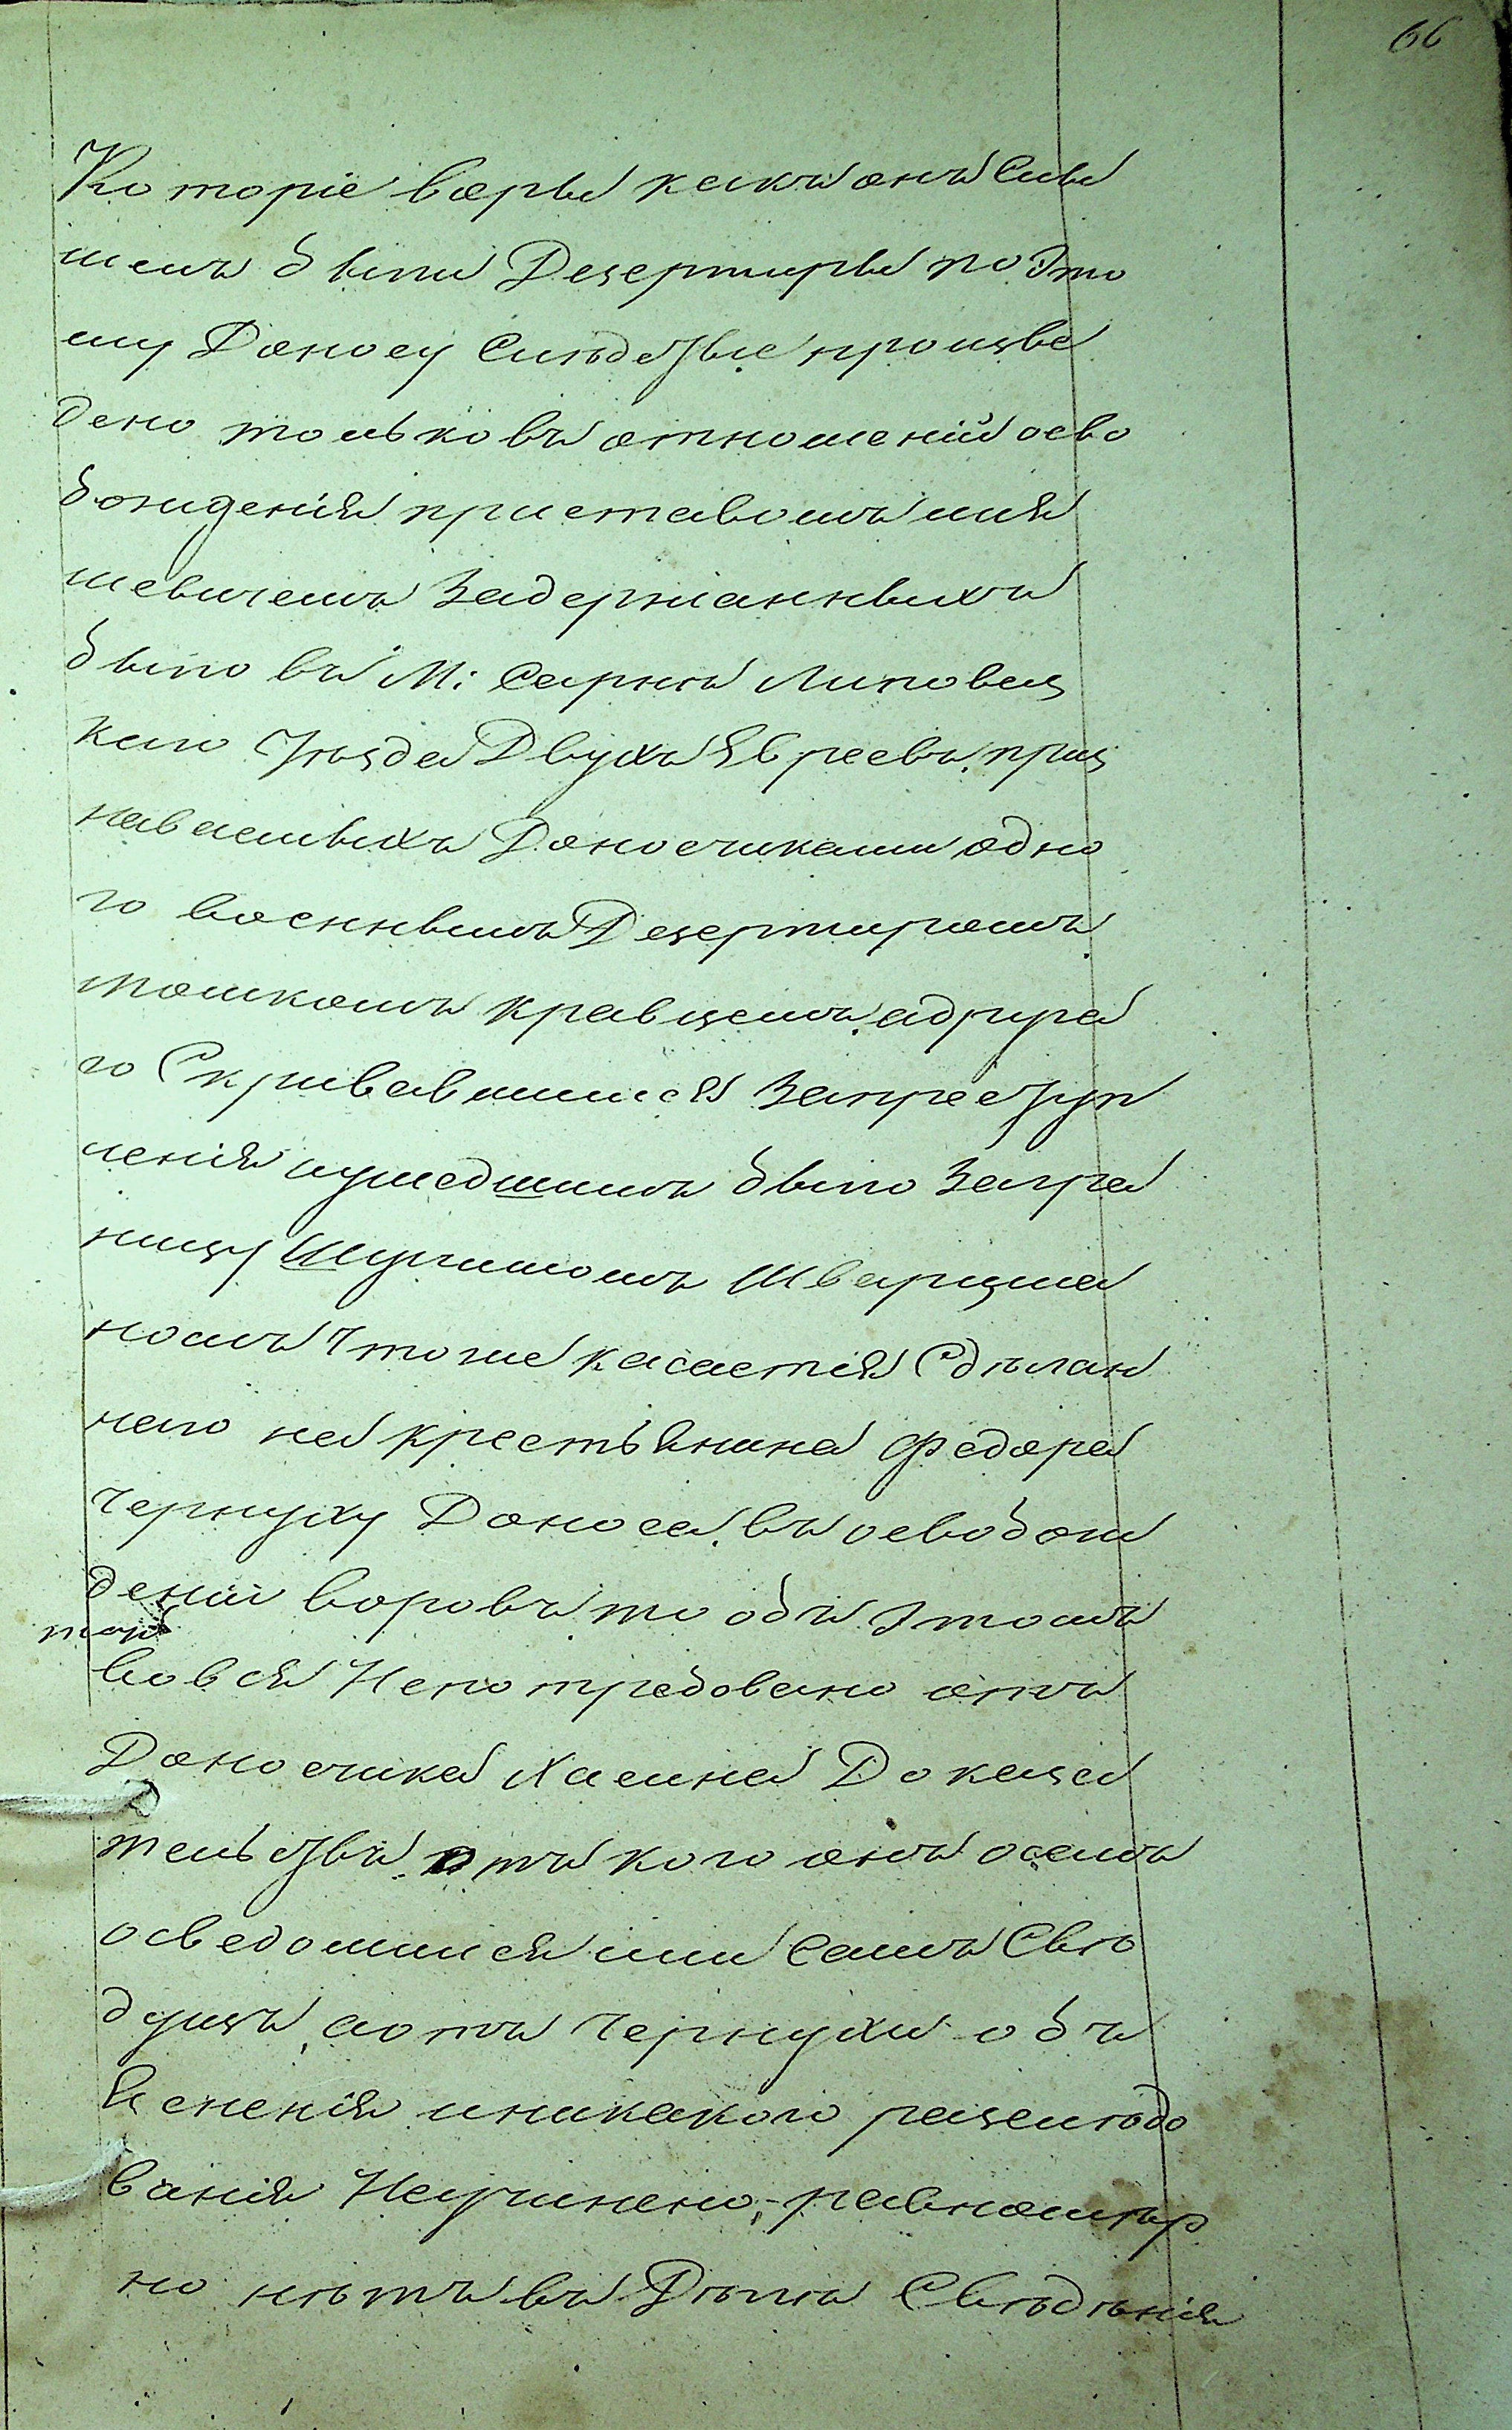 66
Которіе воры какъ онъ Слы
шалъ были Дезертиры по Это
му Доносу Слѣдствіе произве
дено только въ отношеній осво
божденія приставомъ
шевичемъ Задержанныхъ
было въ М: Сарнѣ Липовец
каго Уѣзда Двухъ Евреевъ, приз
наваемыхъ Доносчиками одно
го военнымъ Дезертиромъ
Мошкомъ Кравцемъ, адруга
го Скривавшимся Запреступ
ленія иушедшимъ было Загра
ницу Шулимомъ Шварцма
номъ Чтоже касается Сдѣлан
наго на Крестьянина Федора
Чернуху Доноса, въ освобож
деніи воровъ то объ Этомъ
вовся Непотребовано отъ
Доносчика Хаимна Доказа
тельствъ отъ кого онъ осемъ
осведомился или Самъ Свѣ
дущъ, аотъ Чернухи объ
Ясненія иникакого разслѣдо
ванія Неучинено; равномѣр
но нѣтъ въ Дѣлѣ Свѣдѣнія